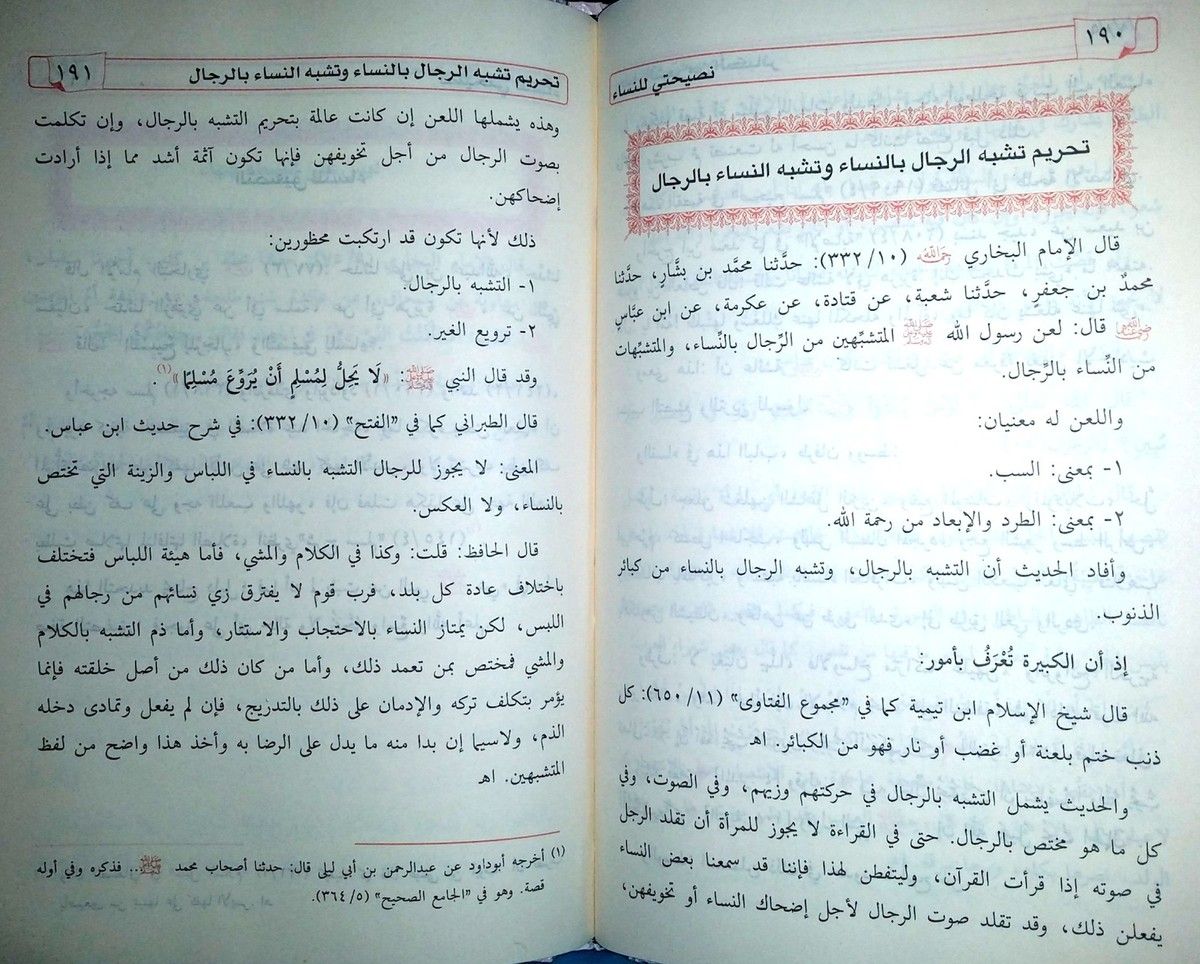 ١٩٠
نصيحتي للنساء
تحريم تشبه الرجال بالنساء وتشبه النساء بالرجال
قال الإمام البخاري رَحِمَهُ اللَّهُ (١٠/ ٣٣٢): حدَّثنا محمَّد بن بشَّار، حدَّثنا
محمدٌ بن جعفرٍ، حدَّثنا شعبة، عن قتادة، عن عكرمة، عن ابن عبَّاسٍ
رضي الله عنهما قال: لعن رسول الله ﷺ المتشبِّهين من الرِّجال بالنِّساء، والمتشبِّهات
من النِّساء بالرِّجال.
واللعن له معنيان:
١- بمعنى: السب.
٢- بمعنى: الطرد والإبعاد من رحمة الله.
وأفاد الحديث أن التشبه بالرجال، وتشبه الرجال بالنساء من كبائر
الذنوب.
إذ أن الكبيرة تُعْرَفُ بأمور:
قال شيخ الإسلام ابن تيمية كما في "مجموع الفتاوى" (١١/ ٦٥٠): كل
ذنب ختم بلعنة أو غضب أو نار فهو من الكبائر. اهـ
والحديث يشمل التشبه بالرجال في حركتهم وزيهم، وفي الصوت، وفي
كل ما هو مختص بالرجال. حتى في القراءة لا يجوز للمرأة أن تقلد الرجل
في صوته إذا قرأت القرآن، وليتفطن لهذا فإننا قد سمعنا بعض النساء
يفعلن ذلك، وقد تقلد صوت الرجال لأجل إضحاك النساء أو تخويفهن،
تحريم تشبه الرجال بالنساء وتشبه النساء بالرجال
١٩١
وهذه يشملها اللعن إن كانت عالمة بتحريم التشبه بالرجال، وإن تكلمت
بصوت الرجال من أجل تخويفهن فإنها تكون آثمة أشد مما إذا أرادت
إضحاكهن.
ذلك لأنها تكون قد ارتكبت محظورين:
١- التشبه بالرجال.
٢- ترويع الغير.
وقد قال النبي ﷺ: «لَا يَحِلُّ لِمُسْلِمٍ أَنْ يُرَوِّعَ مُسْلِمًا»(١).
قال الطبراني كما في "الفتح" (١٠/ ٣٣٢): في شرح حديث ابن عباس.
المعنى: لا يجوز للرجال التشبه بالنساء في اللباس والزينة التي تختص
بالنساء، ولا العكس.
قال الحافظ: قلت: وكذا في الكلام والمشي، فأما هيئة اللباس فتختلف
باختلاف عادة كل بلد، فرب قوم لا يفترق زي نسائهم من رجالهم في
اللبس، لكن يمتاز النساء بالاحتجاب والاستتار، وأما ذم التشبه بالكلام
والمشي فمختص بمن تعمد ذلك، وأما من كان ذلك من أصل خلقته فإنما
يؤمر بتكلف تركه والإدمان على ذلك بالتدريج، فإن لم يفعل وتمادى دخله
الذم، ولاسيما إن بدا منه ما يدل على الرضا به وأخذ هذا واضح من لفظ
المتشبهين. اهـ
(١) أخرجه أبوداود عن عبدالرحمن بن أبي ليلى قال: حدثنا أصحاب محمد ﷺ.. فذكره وفي أوله
قصة. وهو في "الجامع الصحيح" (٥/ ٣٦٤).